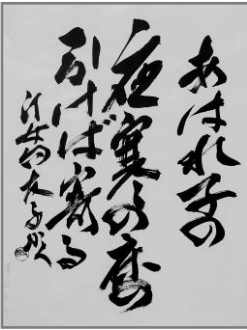 あはれ子の
夜寒の床の
引けば寄る
汀女句